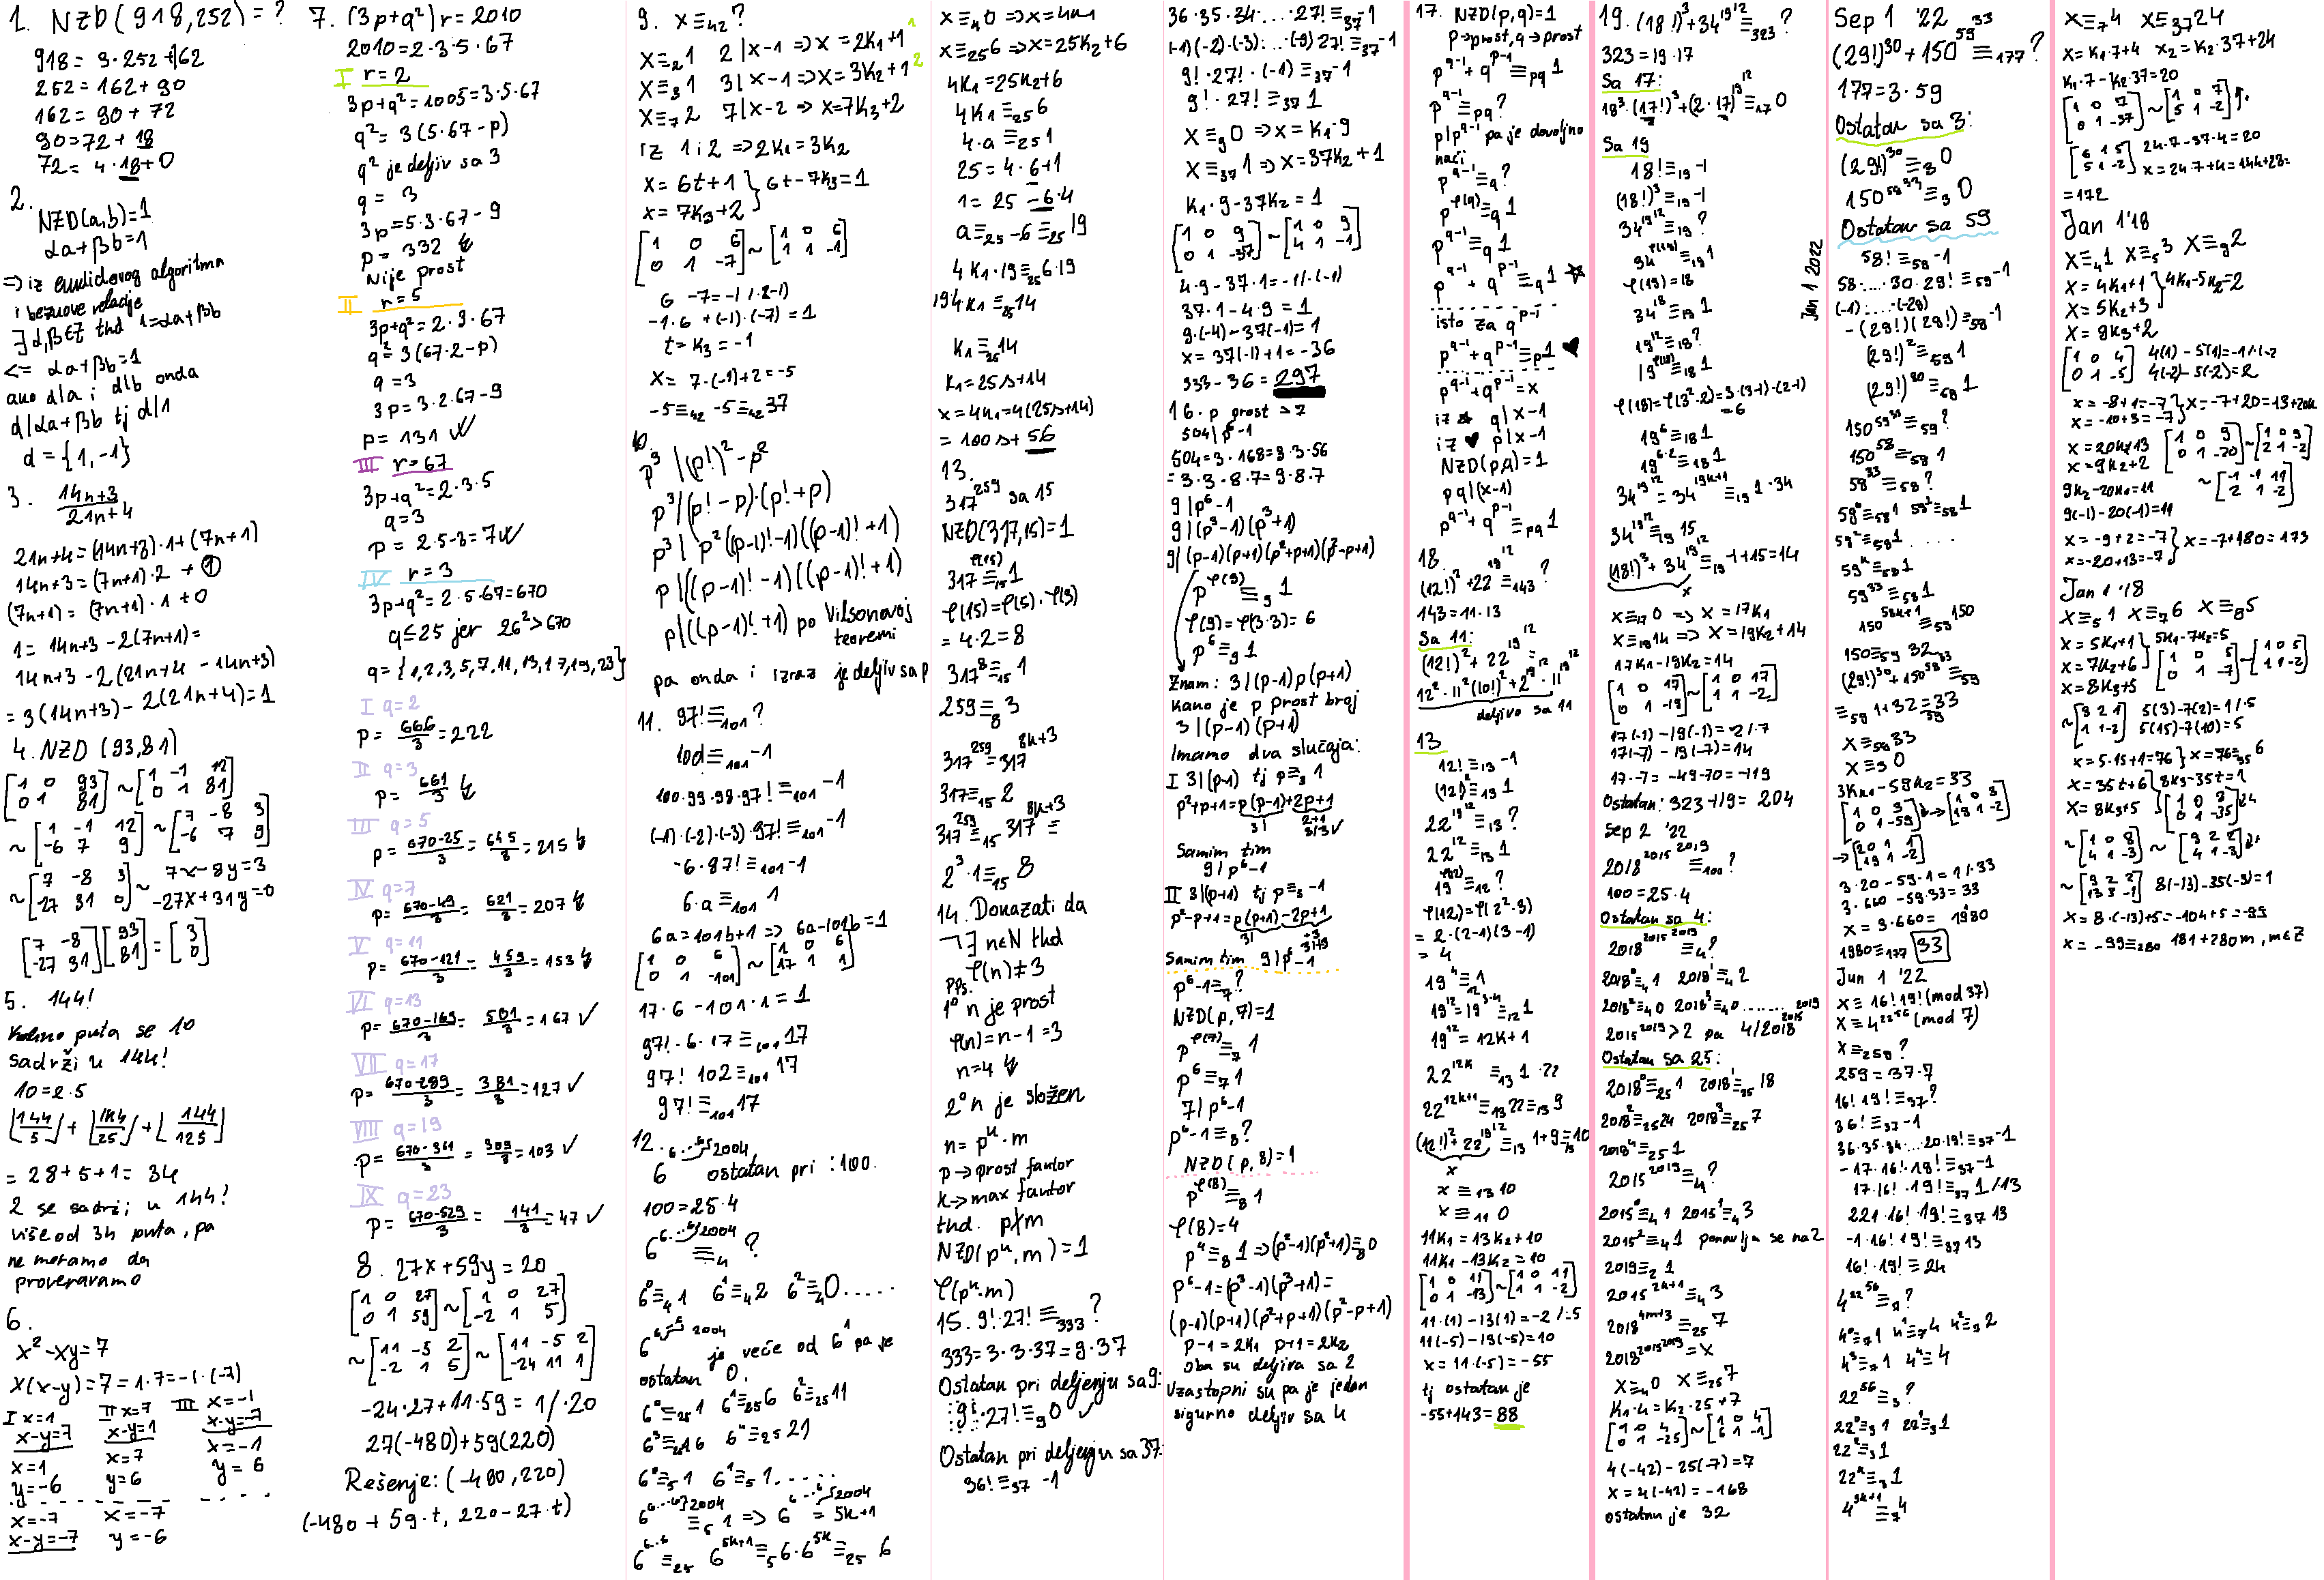 1. NZD(918,252)=?
918 = 3·252+162
252 = 162+90
162 = 90+72
90=72+18
72= 4·18+0
2.
NZD(a,b)=1
αa+βb=1
=> iz euklidovog algoritma
i bezuove relacije
∃α,β∈Z tkd 1=αa+βb
<= αa+βb=1
ako d|a i d|b onda
d|αa+βb tj d|1
d={1,-1}
3. 14n+3/21n+4
21n+4=(14n+3)·1+(7n+1)
14n+3=(7n+1)·2+1
(7n+1)=(7n+1)·1+0
1= 14n+3-2(7n+1)=
14n+3-2(21n+4-14n+3)
=3(14n+3)-2(21n+4)=1
4. NZD(93,81)
[1 0 93; 0 1 81]~[1 -1 12; 0 1 81]
~[1 -1 12; -6 7 9]~[7 -8 3; -6 7 9]
~[7 -8 3; -27 31 0]~ 7x-8y=3
-27x+31y=0
[7 -8; -27 31][93; 81]=[3; 0]
5. 144!
Koliko puta se 10
sadrži u 144!
10=2·5
⌊144/5⌋+⌊144/25⌋+⌊144/125⌋
=28+5+1=34
2 se sadrži u 144!
više od 34 puta, pa
ne moramo da
proveravamo
6.
x²-xy=7
x(x-y)=7=1·7=-1·(-7)
I x=1 II x=7 III x=-1
x-y=7 x-y=1 x-y=-7
x=1 x=7 x=-1
y=-6 y=6 y=6
x=-7 x=-7
x-y=-7 y=-6
7. (3p+q²)r=2010
2010=2·3·5·67
I r=2
3p+q²=1005=3·5·67
q²=3(5·67-p)
q² je deljiv sa 3
q=3
3p=5·3·67-9
p=332
Nije prost
II r=5
3p+q²=2·3·67
q²=3(67·2-p)
q=3
3p=3·2·67-9
p=131 ✓
III r=67
3p+q²=2·3·5
q=3
p=2·5-3=7✓
IV r=3
3p+q²=2·5·67=670
q≤25 jer 26²>670
q={1,2,3,5,7,11,13,17,19,23}
I q=2
p=666/3=222
II q=3
p=661/3
III q=5
p=670-25/3=645/3=215
IV q=7
p=670-49/3=621/3=207
V q=11
p=670-121/3=459/3=153
VI q=13
p=670-169/3=501/3=167 ✓
VII q=17
p=670-289/3=381/3=127 ✓
VIII q=19
p=670-361/3=309/3=103 ✓
IX q=23
p=670-529/3=141/3=47 ✓
8. 27x+59y=20
[1 0 27; 0 1 59]~[1 0 27; -2 1 5]
~[11 -5 2; -2 1 5]~[11 -5 2; -24 11 1]
-24·27+11·59=1/·20
27(-480)+59(220)
Rešenje: (-480,220)
(-480+59·t, 220-27·t)
9. x≡₄₂?
x≡₂1 2|x-1 =>x=2k₁+1 1
x≡₃1 3|x-1=>x=3k₂+1 2
x≡₇2 7|x-2 => x=7k₃+2
iz 1 i 2 =>2k₁=3k₂
x=6t+1 } 6t-7k₃=1
x=7k₃+2
[1 0 6; 0 1 -7]~[1 0 6; 1 1 -1]
6 -7=-1/·(-1)
-1·6+(-1)·(-7)=1
t=k₃=-1
x= 7·(-1)+2=-5
-5≡₄₂ -5≡₄₂37
10.
p³|(p!)²-p²
p³|(p!-p)(p!+p)
p³|p²((p-1)!-1)((p-1)!+1)
p|((p-1)!-1)((p-1)!+1)
p|((p-1)!+1) po Vilsonovoj
teoremi
pa onda i izraz je deljiv sa p
11. 97!≡₁₀₁?
100!≡₁₀₁-1
100·99·98·97!≡₁₀₁-1
(-1)·(-2)·(-3)·97!≡₁₀₁-1
-6·97!≡₁₀₁-1
6·a≡₁₀₁1
6a=101b+1=>6a-101b=1
[1 0 6; 0 1 -101]~[1 0 6; 17 1 1]
17·6-101·1=1
97!·6·17≡₁₀₁17
97! 102≡₁₀₁17
97!≡₁₀₁17
12. 6^6^…^6}2004 ostatak pri :100.
100=25·4
6^6^…^6}2004≡₄?
6⁰≡₄1 6¹≡₄2 6²≡₄0.....
6^6^…^6 2004 je veće od 6¹ pa je
ostatak 0.
6⁰≡₂₅1 6¹≡₂₅6 6²≡₂₅11
6³≡₂₅16 6⁴≡₂₅21
6⁰≡₅1 6¹≡₅1.....
6^6^…^6}2004≡₅1=>6^6^…^6}2004=5k+1
6^6^…^6≡₂₅6^5k+1≡₅6·6^5k≡₂₅6
x≡₄0=>x=4k₁
x≡₂₅6=>x=25k₂+6
4k₁=25k₂+6
4k₁≡₂₅6
4·a≡₂₅1
25=4·6+1
1=25-6·4
a≡₂₅-6≡₂₅19
4k₁·19≡₂₅6·19
19·4·k₁≡₂₅14
k₁≡₂₅14
k₁=25s+14
x=4k₁=4(25s+14)
=100s+56
13.
317²⁵⁹ sa 15
NZD(317,15)=1
317^φ(15)≡₁₅1
φ(15)=φ(5)·φ(3)
=4·2=8
317⁸≡₁₅1
259≡₈3
317²⁵⁹=317^8k+3
317≡₁₅2
317²⁵⁹≡₁₅317^8k+3≡
2³·1≡₁₅8
14. Dokazati da
¬∃ n∈N tkd
φ(n)≠3
pps.
1° n je prost
φ(n)=n-1=3
n=4
2° n je složen
n=p^k·m
p→prost faktor
k→max faktor
tkd. p∤m
NZD(p^k,m)=1
φ(p^k·m)
15. 9!·27!≡₃₃₃?
333=3·3·37=9·37
Ostatak pri deljenju sa 9:
9!·27!≡₉0 ✓
Ostatak pri deljenju sa 37:
36!≡₃₇-1
36·35·34·...·27!≡₃₇-1
(-1)(-2)·(-3)·...·(-9)27!≡₃₇-1
9!·27!·(-1)≡₃₇-1
9!·27!≡₃₇1
x≡₉0=>x=k₁·9
x≡₃₇1=>x=37k₂+1
k₁·9-37k₂=1
[1 0 9; 0 1 -37]~[1 0 9; 4 1 -1]
4·9-37·1=-1/·(-1)
37·1-4·9=1
9·(-4)-37(-1)=1
x=37(-1)+1=-36
333-36=297
16. p prost >7
504|p⁶-1
504=3·168=3·3·56
=3·3·8·7=9·8·7
9|p⁶-1
9|(p³-1)(p³+1)
9|(p-1)(p+1)(p²+p+1)(p²-p+1)
p^φ(9)≡₉1
φ(9)=φ(3·3)=6
p⁶≡₉1
Znam: 3|(p-1)p(p+1)
Kako je p prost broj
3|(p-1)(p+1)
Imamo dva slučaja:
I 3|(p-1) tj p≡₃1
p²+p+1=p(p-1)+2p+1
3| 2+1
3|3✓
Samim tim
9|p⁶-1
II 3|(p+1) tj p≡₃-1
p²-p+1=p(p+1)-2p+1
3| +3
Samim tim 9|p⁶-1
p⁶-1≡₇?
NZD(p,7)=1
p^φ(7)≡₇1
p⁶≡₇1
7|p⁶-1
p⁶-1≡₈?
NZD(p,8)=1
p^φ(8)≡₈1
φ(8)=4
p⁴≡₈1=>(p²-1)(p²+1)≡₈0
p⁶-1=(p³-1)(p³+1)=
(p-1)(p+1)(p²+p+1)(p²-p+1)
p-1=2k₁ p+1=2k₂
oba su deljiva sa 2
Uzastopni su pa je jedan
sigurno deljiv sa 4
17. NZD(p,q)=1
p→prost,q→prost
p^q-1+q^p-1≡pq1
p^q-1≡pq?
p|p^q-1 pa je dovoljno
naći
p^q-1≡q?
p^φ(q)≡q1
p^q-1≡q1
p^q-1+q^p-1≡q1 ☆
isto za q^p-1
p^q-1+q^p-1≡p1 ♥
p^q-1+q^p-1=x
iz ☆ q|x-1
iz ♥ p|x-1
NZD(p,q)=1
pq|(x-1)
p^q-1+q^p-1≡pq1
18.
(12!)²+22^19^12≡₁₄₃?
143=11·13
Sa 11:
(12!)²+22^19^12=
12²·11²(10!)²+2^19^12·11^19^12
deljivo sa 11
13
12!≡₁₃-1
(12!)²≡₁₃1
22^19^12≡₁₃?
22¹²≡₁₃1
19^φ(12)≡₁₂?
φ(12)=φ(2²·3)
=2·(2-1)(3-1)
=4
19⁴≡1
19¹²=19^3·4≡₁₂1
19¹²=12k+1
22^12k≡₁₃1·22
22^12k+1≡₁₃22≡₁₃9
(12!)²+22^19^12≡₁₃1+9=10
x
x≡₁₃10
x≡₁₁0
11k₁=13k₂+10
11k₁-13k₂=10
[1 0 11; 0 1 -13]~[1 0 11; 1 1 -2]
11·(1)-13(1)=-2/·5
11(-5)-13(-5)=10
x=11·(-5)=-55
tj ostatak je
-55+143=88
19.(18!)³+34^19^12≡₃₂₃?
323=19·17
Sa 17:
18³·(17!)³+(2·17)^19^12≡₁₇0
Sa 19
18!≡₁₉-1
(18!)³≡₁₉-1
34^19^12≡₁₉?
34^φ(19)≡₁₉1
φ(19)=18
34¹⁸≡₁₉1
19¹²≡₁₈?
19^φ(18)≡₁₈1
φ(18)=φ(3²·2)=3·(3-1)·(2-1)
=6
19⁶≡₁₈1
19^6·2≡₁₈1
34^19^12=34^19k+1≡₁₉1·34
34^19^12≡₁₉15
(18!)³+34^19^12≡₁₉-1+15=14
x
x≡₁₇0=>x=17k₁
x≡₁₉14=>x=19k₂+14
17k₁-19k₂=14
[1 0 17; 0 1 -19]~[1 0 17; 1 1 -2]
17(-1)-19(-1)=-2/·7
17(-7)-19(-7)=14
17·-7=-49-70=-119
Ostatak: 323-119=204
Sep 2 '22
2018^2015^2019≡₁₀₀?
100=25·4
Ostatak sa 4:
2018^2015^2019≡₄?
2018⁰≡₄1 2018¹≡₄2
2018²≡₄0 2018³≡₄0......
2015²⁰¹⁹>2 pa 4/2018^2015^2019
Ostatak sa 25:
2018⁰≡₂₅1 2018¹≡₂₅18
2018²≡₂₅24 2018³≡₂₅7
2018⁴≡₂₅1
2015²⁰¹⁹≡₄?
2015⁰≡₄1 2015¹≡₄3
2015²≡₄1 ponavlja se na 2
2019≡₂1
2015^2k+1≡₄3
2018^4m+3≡₂₅7
2018^2015^2019=x
x≡₄0 x≡₂₅7
k₁·4=k₂·25+7
[1 0 4; 0 1 -25]~[1 0 4; 6 1 -1]
4(-42)-25(-7)=7
x=4(-42)=-168
ostatak je 32
Jan 1 2022
Sep 1 '22
(29!)³⁰+150^59^33≡₁₇₇?
177=3·59
Ostatak sa 3:
(29!)³⁰≡₃0
150^59^33≡₃0
Ostatak sa 59
58!≡₅₈-1
58·...·30·29!≡₅₉-1
(-1)·...·(-29)
-(29!)(29!)≡₅₉-1
(29!)²≡₅₉1
(29!)³⁰≡₅₉1
150^59^33≡₅₉?
150⁵⁸≡₅₉1
59³³≡₅₈?
59⁰≡₅₈1 59¹≡₅₈1
59²≡₅₈1.....
59^k≡₅₈1
59³³≡₅₈1
150^58k+1≡₅₉150
150≡₅₉32
(29!)³⁰+150^59^33≡₅₉
≡₅₉1+32=33
x≡₅₉33
x≡₃0
3k₁-59k₂=33
[1 0 3; 0 1 -59]→[1 0 3; 19 1 -2]
→[20 1 1; 19 1 -2]
3·20-59·1=1/·33
3·660-59·33=33
x=3·660=1980
1980≡₁₇₇33
Jun 1 '22
x≡16!19!(mod 37)
x≡4^22^56(mod 7)
x≡₂₅₉?
259=37·7
16!19!≡₃₇?
36!≡₃₇-1
36·35·34·...20·19!≡₃₇-1
-17·16!·19!≡₃₇-1
17·16!·19!≡₃₇1/13
221·16!·19!≡₃₇13
-1·16!·19!≡₃₇13
16!·19!≡24
4^22^56≡₇?
4⁰≡₇1 4¹≡₇4 4²≡₇2
4³≡₇1 4⁴≡4
22⁵⁶≡₃?
22⁰≡₃1 22¹≡₃1
22²≡₃1
22^k≡₃1
4^3k+1≡₇4
x≡₇4 x≡₃₇24
x=k₁·7+4 x₂=k₂·37+24
k₁·7-k₂·37=20
[1 0 7; 0 1 -37]~[1 0 7; 5 1 -2]
[6 1 5; 5 1 -2] 24·7-37·4=20
x=24·7+4=144+28=
=172
Jan 1'18
x≡₄1 x≡₅3 x≡₉2
x=4k₁+1 } 4k₁-5k₂=2
x=5k₂+3
x=9k₃+2
[1 0 4; 0 1 -5] 4(1)-5(1)=-1/·(-2
4(-2)-5(-2)=2
x=-8+1=-7 } x=-7+20=13+20k
x=-10+3=-7
x=20k+13 [1 0 9; 0 1 -20]~[1 0 9; 2 1 -2]
x=9k₂+2
9k₂-20k₁=11 ~[-1 -1 11; 2 1 -2]
9(-1)-20(-1)=11
x=-9+2=-7 } x=-7+180=173
x=-20+13=-7
Jan 1 '18
x≡₅1 x≡₇6 x≡₈5
x=5k₁+1 } 5k₁-7k₂=5
x=7k₂+6 [1 0 5; 0 1 -7]~[1 0 5; 1 1 -2]
x=8k₃+5
~[3 2 1; 1 1 -2] 5(3)-7(2)=1/·5
5(15)-7(10)=5
x=5·15+1=76 } x=76≡₃₅6
x=35t+6 } 8k₃-35t=1
x=8k₃+5 [1 0 8; 0 1 -35]
~[1 0 8; 4 1 -3]~[9 2 2; 4 1 -3]
~[9 2 2; 13 3 -1] 8(-13)-35(-3)=1
x=8·(-13)+5=-104+5=-99
x=-99≡₂₈₀181+280m, m∈Z